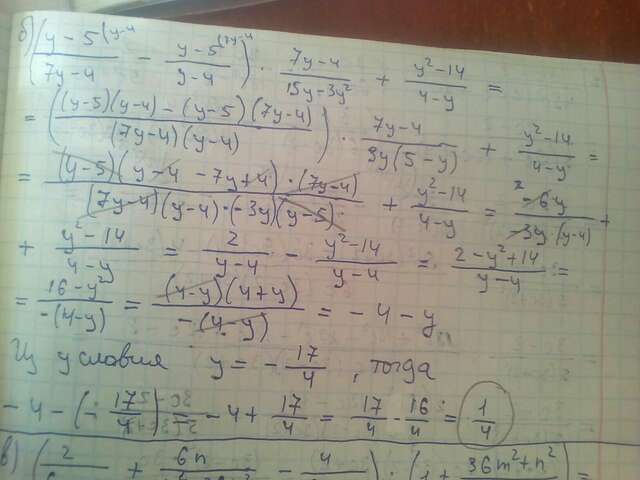 б) ((y-5)/(7y-4) (y-4 - (y-5)/(y-4) (7y-4) · (7y-4)/(15y-3y²) + (y²-14)/(4-y) =
= (((y-5)(y-4) - (y-5)(7y-4))/((7y-4)(y-4))) · (7y-4)/(3y(5-y)) + (y²-14)/(4-y) =
= ((y-5)(y-4-7y+4)·(7y-4))/((7y-4)(y-4)·(-3y)(y-5)) + (y²-14)/(4-y) = (-6y)/(-3y(y-4)) +
+ (y²-14)/(4-y) = 2/(y-4) - (y²-14)/(y-4) = (2-y²+14)/(y-4) =
= (16-y²)/(-(4-y)) = ((4-y)(4+y))/(-(4-y)) = -4-y
Из условия y = -17/4, тогда
-4-(-17/4) = -4+17/4 = 17/4 - 16/4 = 1/4
в) (2/ + 6n/ - 4/) : (1 + 36m²+n²/) =